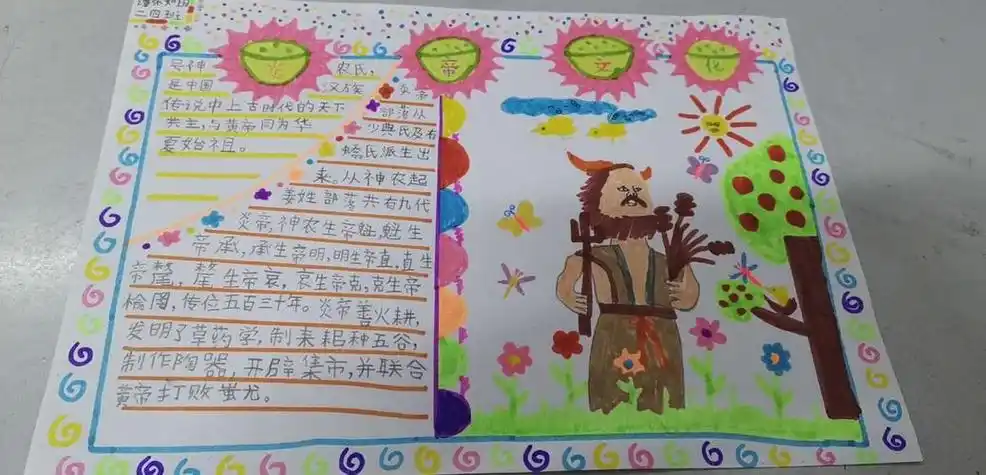 二四班
炎 帝 文 化
号神 农氏,
是中国 汉族
传说中上古时代的天下
共主,与黄帝同为华
夏始祖。
炎帝
部落从
少典氏及有
蟜氏派生出
来。从神农起
姜姓部落共有九代
炎帝,神农生帝魁,魁生
帝承,承生帝明,明生帝直,直生
帝氂,氂生帝哀,哀生帝克,克生帝
榆罔,传位五百三十年。炎帝善火耕,
发明了草药学,制耒耜种五谷,
制作陶器,开辟集市,并联合
黄帝打败蚩尤。